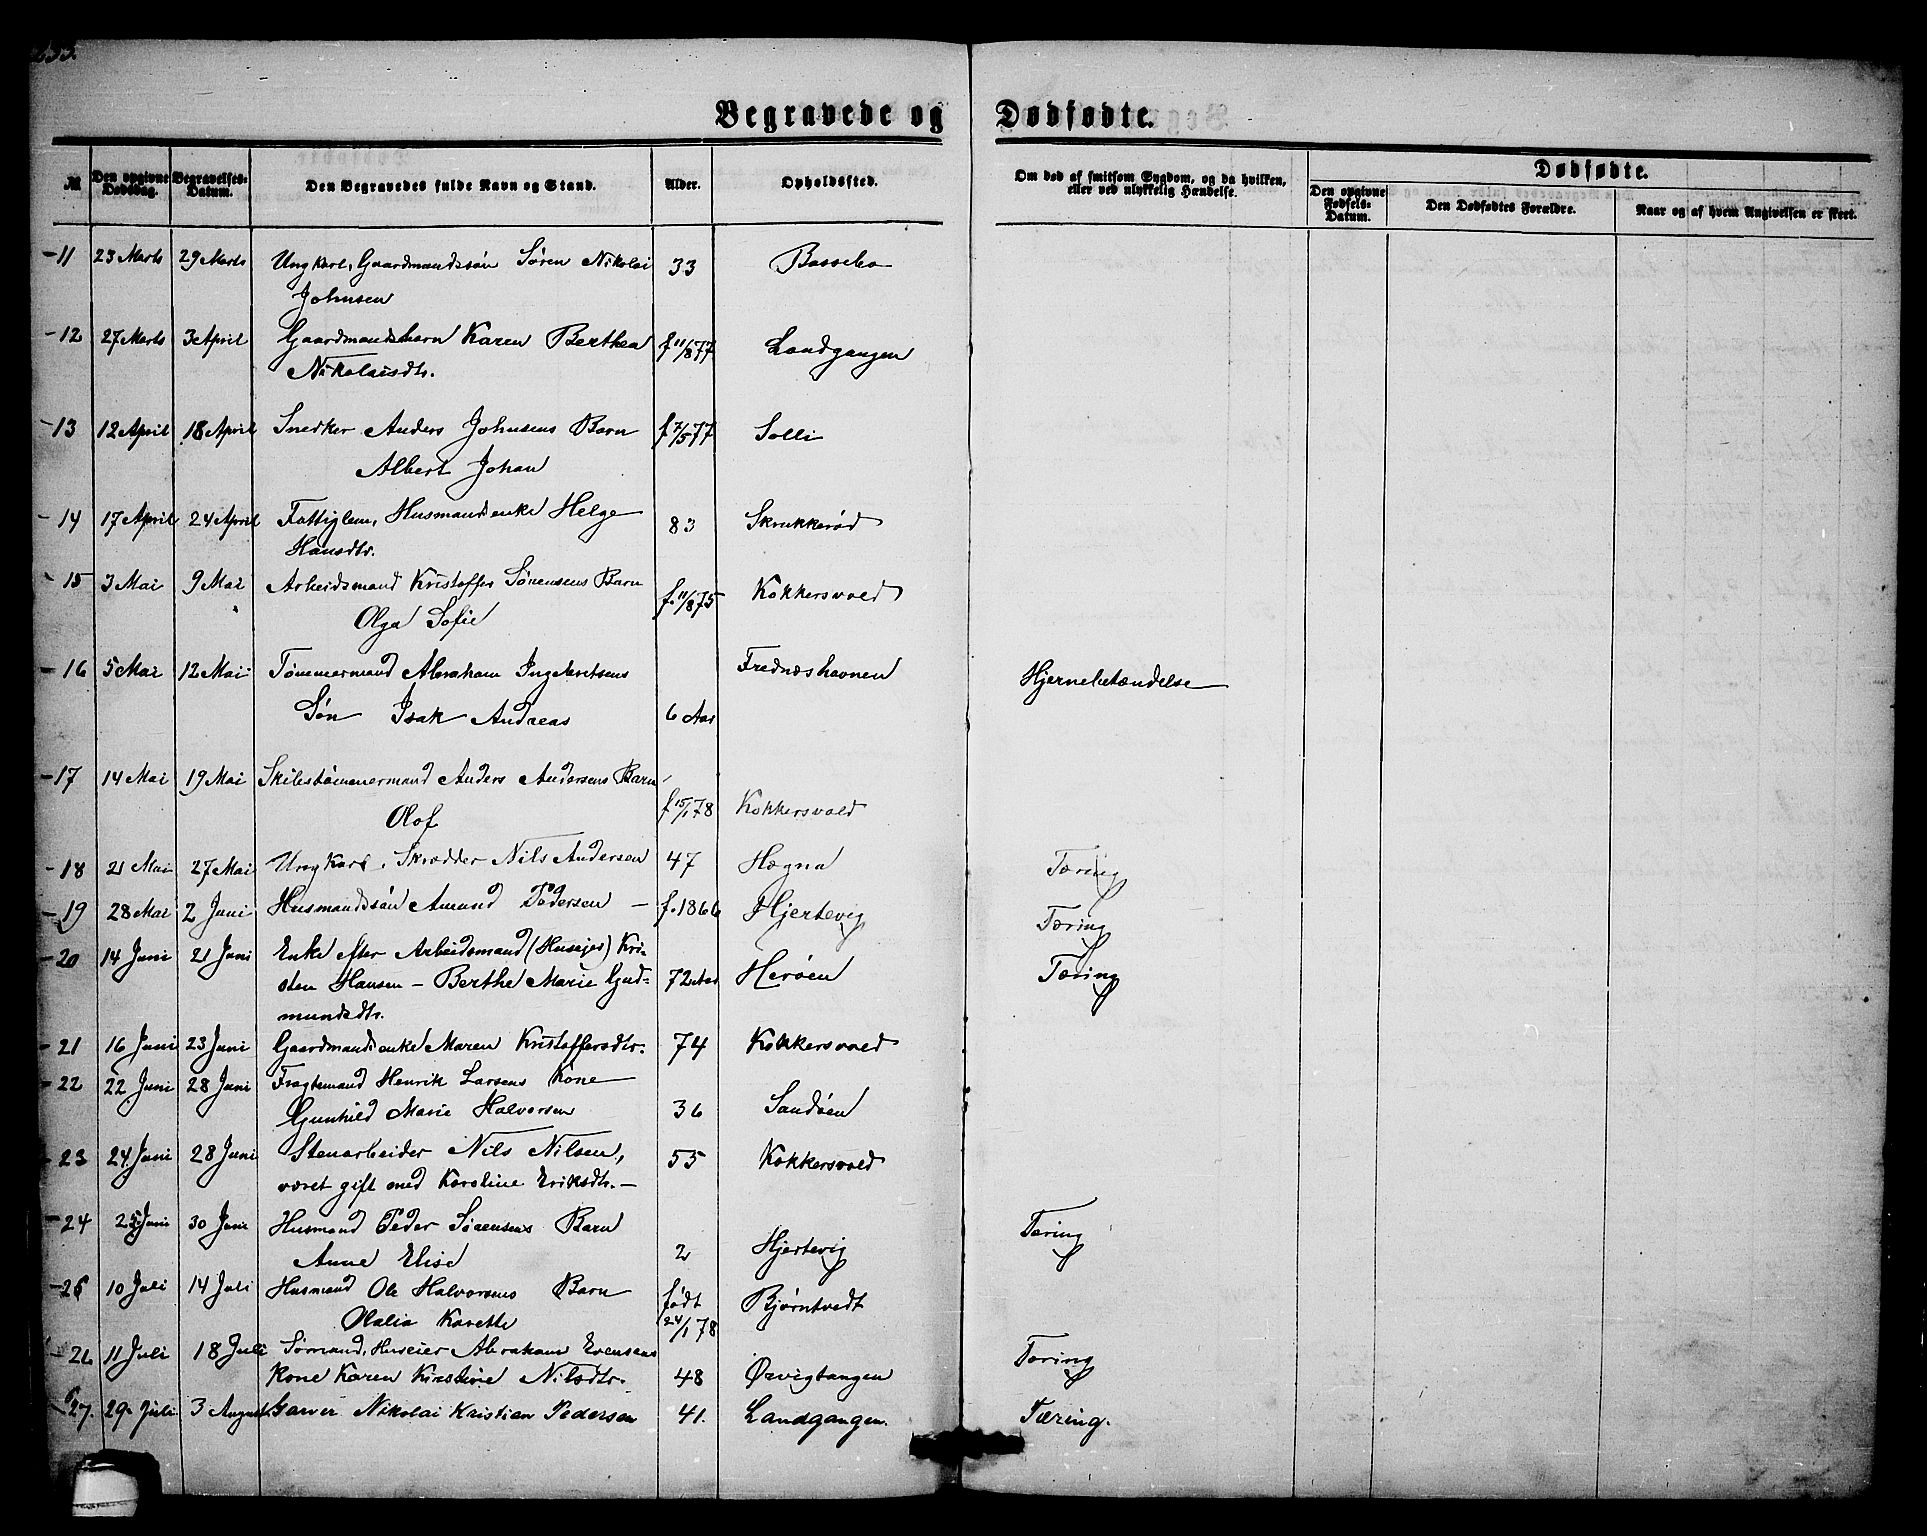 Begravede og Dødfødte.
№ Den opgivne Dødsdag. Begravelses-Datum. Den Begravedes fulde Navn og Stand. Alder. Opholdssted. Om død af smitsom Sygdom, og da hvilken, eller ved ulykkelig Hændelse. Dødfødte. Den opgivne Fødsels-Datum. Den Dødfødtes Forældre. Naar og af hvem Angivelsen er skeet.
11 23 Marts 29 Marts Ungkarl, Gaardmandssøn Søren Nikolai 33 Bassebo
Johnsen
12 27 Marts 3 April Gaardmandsbarn Karen Berthea f. 11/8 77 Landgangen
Nikolaisdtr.
13 12 April 18 April Snedker Anders Johnsens Barn f. 7/5 77 Solli
Albert Johan
14 17 April 24 April Fattiglem, Husmandsenke Helge 83 Skrukkerød
Hansdtr.
15 3 Mai 9 Mai Arbeidsmand Kristoffer Sørensens Barn f. 11/8 75 Kokkersvold
Olga Sofie
16 5 Mai 12 Mai Tømmermand Abraham Ingebretsens Frednæshavnen Hjernebetændelse
Søn Isak Andreas 6 Aar
17 14 Mai 19 Mai Skibstømmermand Anders Andersens Barn
Olof f. 15/1 78 Kokkersvold
18 21 Mai 27 Mai Ungkarl, Skrædder Nils Andersen 47 Høgna Tæring
19 28 Mai 2 Juni Husmandssøn Amund Pedersen — f. 1866 Hjertevig Tæring
20 14 Juni 21 Juni Enke efter Arbeidsmand (Husejer) Kri-
sten Hansen — Berthe Marie Gud- 72 Aar Herøen Tæring
mundsdtr.
21 16 Juni 23 Juni Gaardmandsenke Maren Kristoffersdtr. 74 Kokkersvold
22 22 Juni 28 Juni Fragtemand Henrik Larsens Kone
Gunhild Marie Halvorsen 36 Sandøen
23 24 Juni 28 Juni Stenarbeider Nils Nilsen, 55 Kokkersvold
været gift med Karoline Eriksdtr. —
24 25 Juni 30 Juni Husmand Peder Sørensens Barn Tæring
Anne Elise 2 Hjertevig
25 10 Juli 14 Juli Husmand Ole Halvorsens Barn født Bjørntvedt
Olalia Karette 24/1 78
26 11 Juli 18 Juli Sømand, Huseier Abraham Evensens Tæring
Kone Karen Kirstine Nilsdtr. 48 Ørvigtangen
27. 29 Juli 3 August Garver Nikolai Kristian Pedersen 41. Landgangen. Tæring.